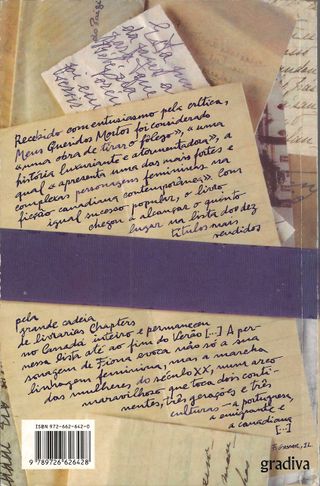 Recebido com entusiasmo pela crítica,
Meus Queridos Mortos foi considerado
«uma obra de tirar o fôlego», «uma
história luxuriante e atormentada», a
qual «apresenta uma das mais fortes e
complexas personagens femininas na
ficção canadiana contemporânea». Com
igual sucesso popular, o livro
chegou a alcançar o quinto
lugar na lista dos dez
títulos mais
vendidos
pela
grande cadeia
de livrarias Chapters
no Canadá inteiro e permaneceu
nessa lista até ao fim do Verão [...] A per-
sonagem de Fiona evoca não só a sua
linhagem feminina, mas a marcha
das mulheres do século XX, num arco
maravilhoso que toca dois conti-
nentes, três gerações e três
culturas — a portuguesa,
a emigrante e
a canadiana
[...]
ISBN 972-662-642-0
9 789726 626428
gradiva